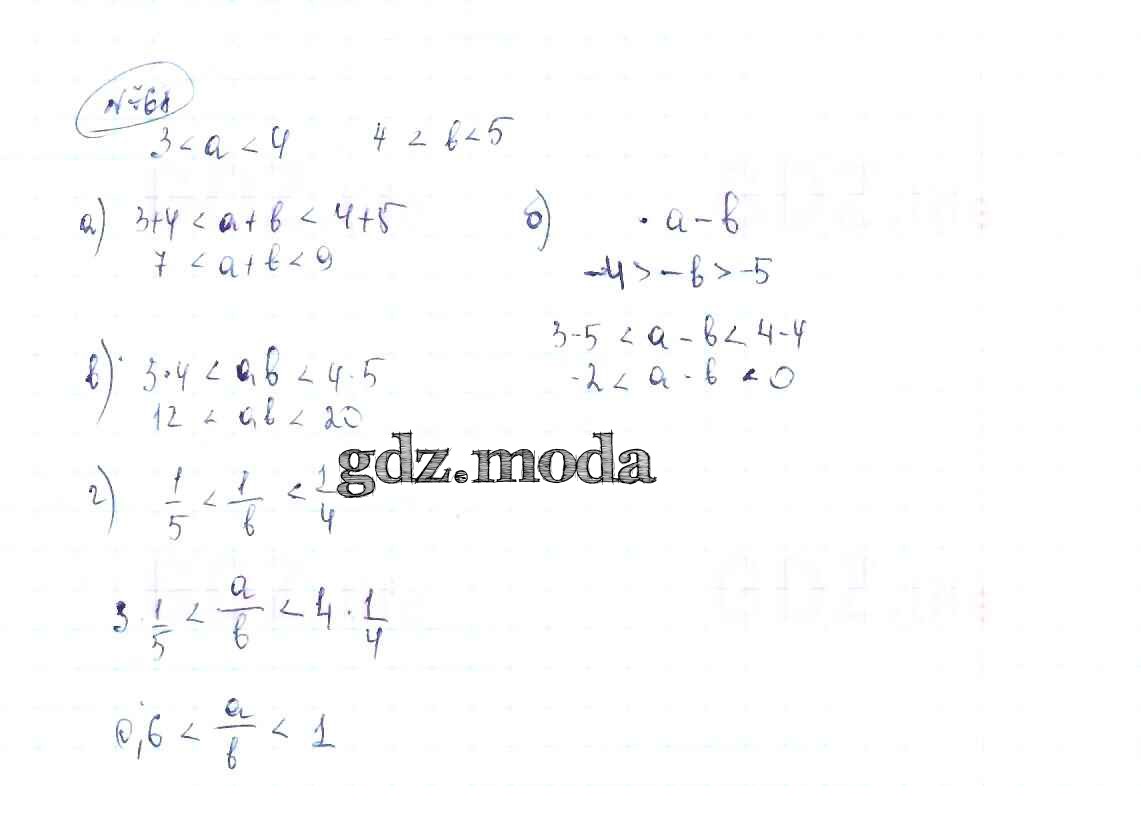 №68
3 < a < 4 4 < b < 5
а) 3+4 < a+b < 4+5
7 < a+b < 9
б) · a - b
-4 > -b > -5
3-5 < a - b < 4-4
-2 < a - b < 0
в) 3·4 < ab < 4·5
12 < ab < 20
gdz.moda
г) 1/5 < 1/b < 1/4
3·1/5 < a/b < 4·1/4
0,6 < a/b < 1